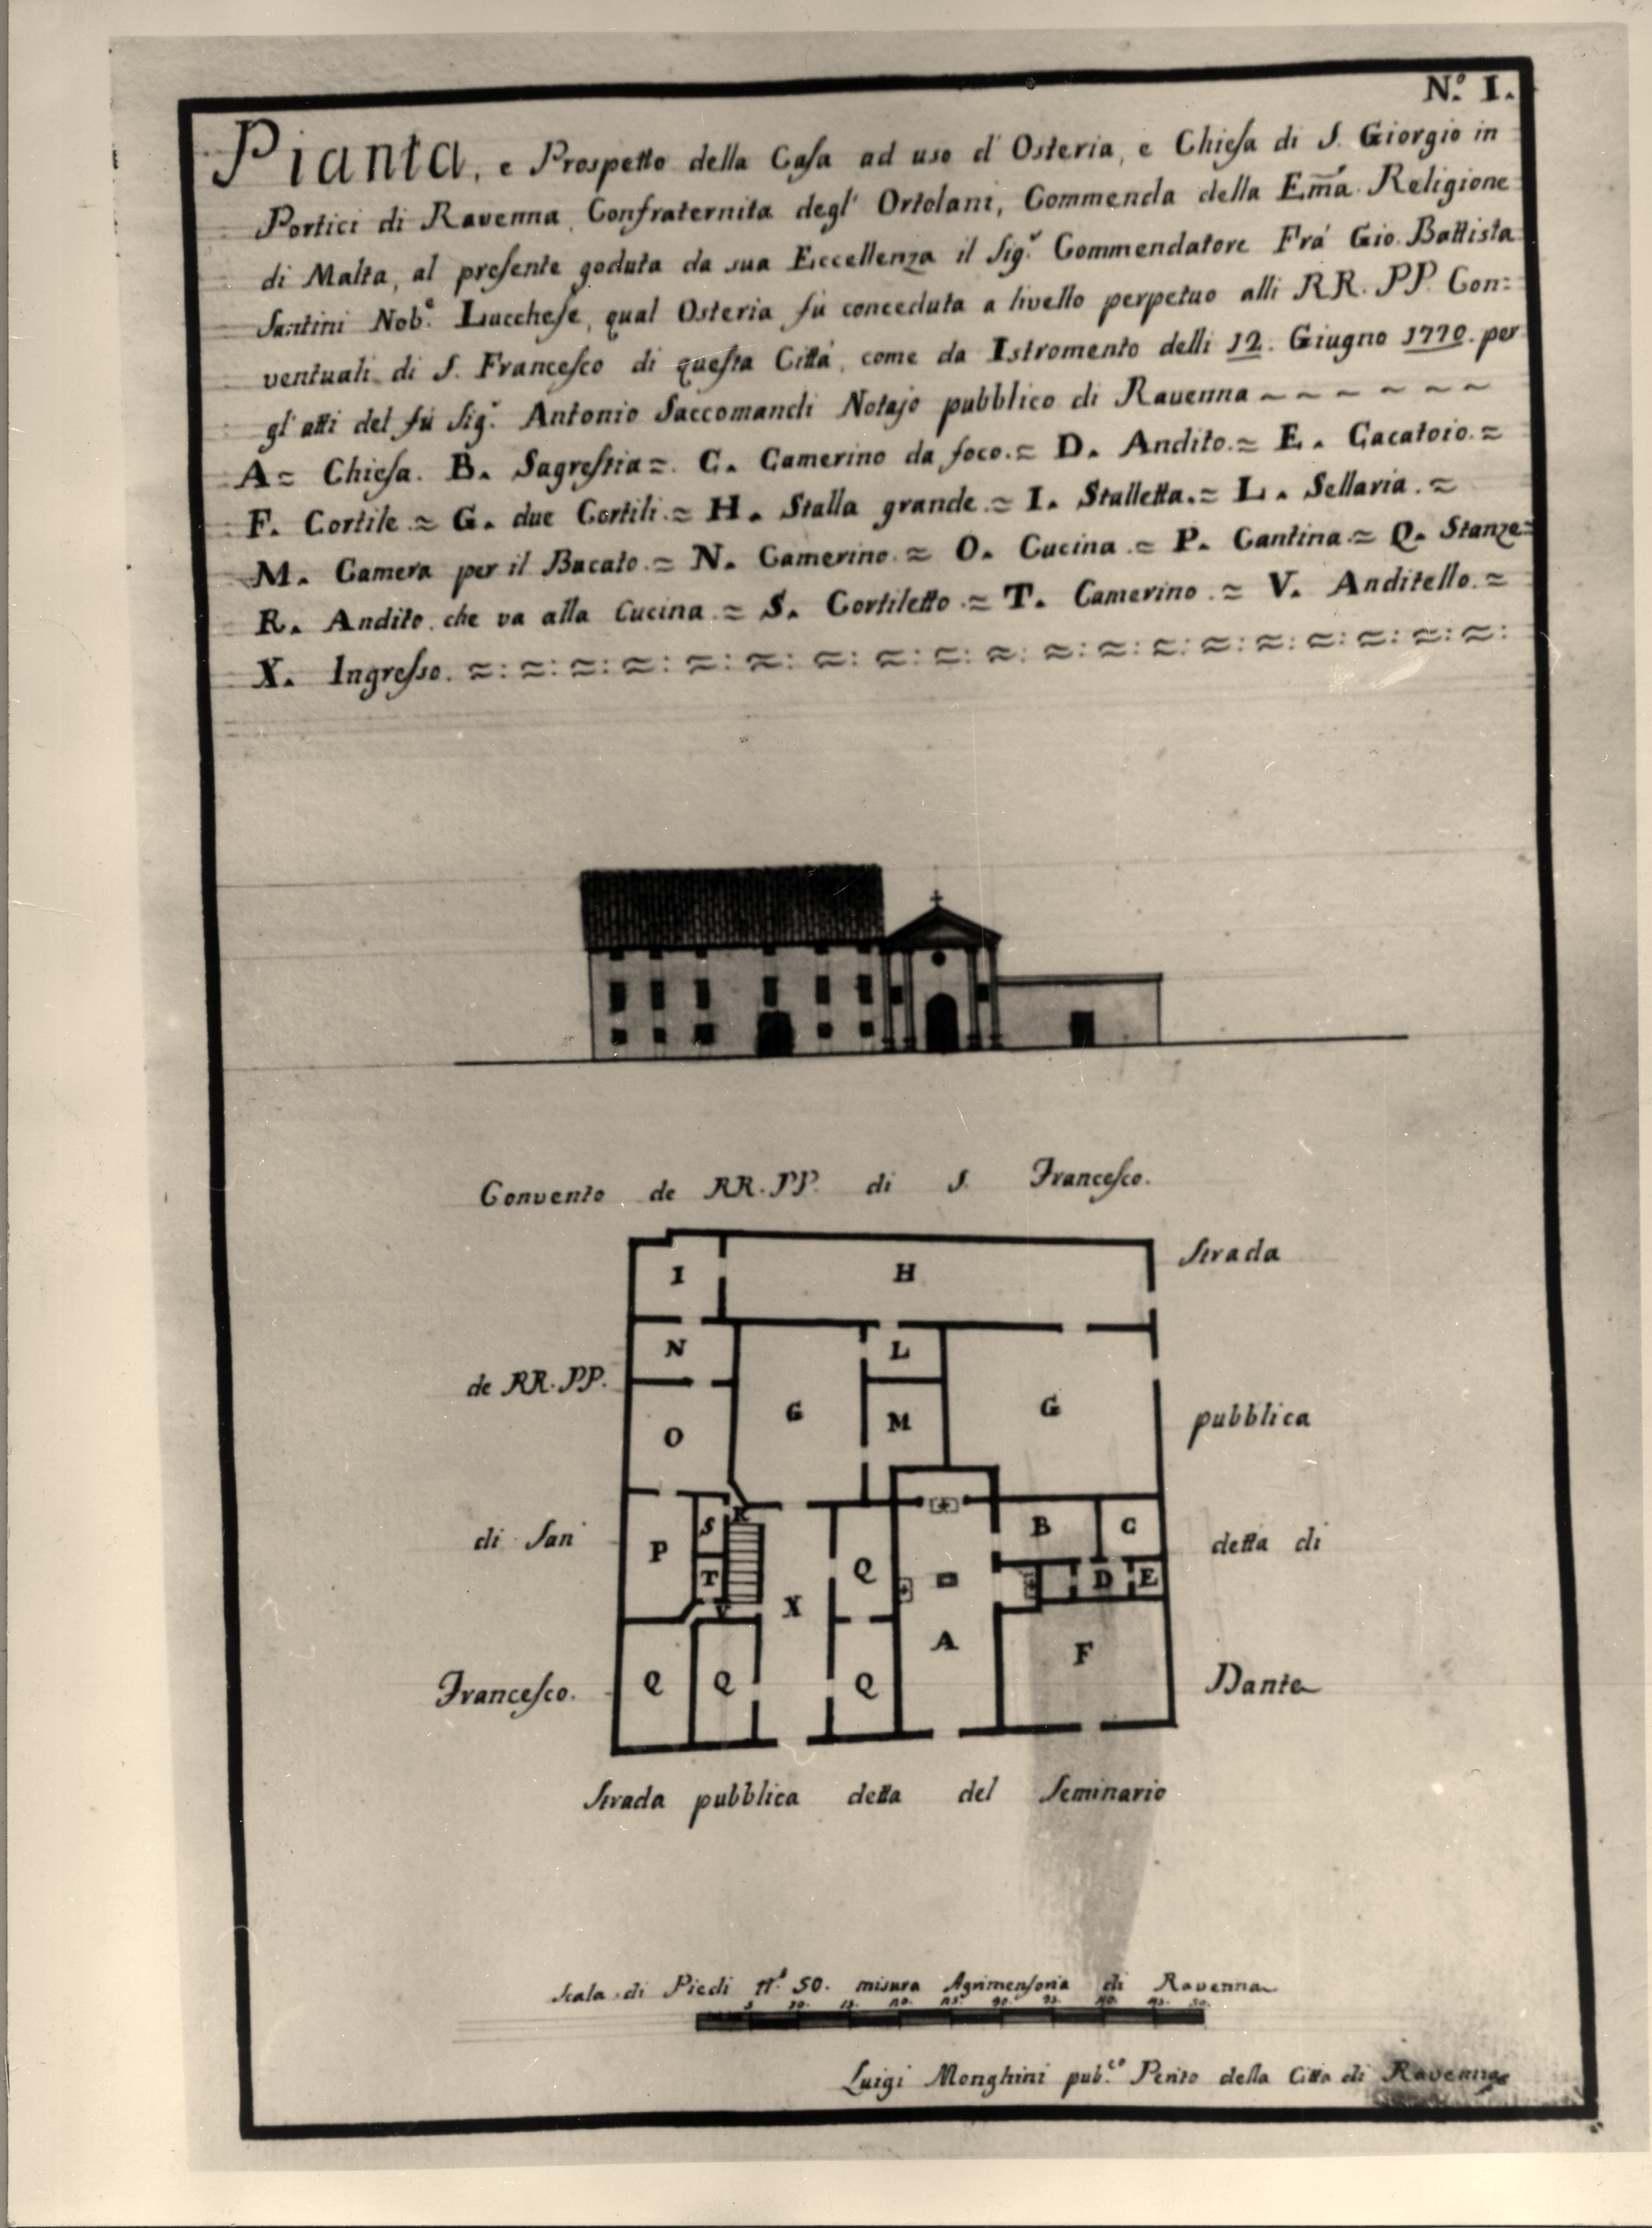 N.º I.
Pianta, e Prospetto della Casa ad uso d' Osteria, e Chiesa di S. Giorgio in
Portici di Ravenna, Confraternita degl' Ortolani, Commenda della Em̃a Religione
di Malta, al presente goduta da sua Eccellenza il Sig.r Commendatore Frá Gio. Battista
Santini Nob.e Lucchese, qual Osteria fú conceduta a livello perpetuo alli RR. PP. Con:
ventuali di S. Francesco di questa Cittá, come da Istromento delli 12. Giugno 1770. per
gl' atti del fú Sig.r Antonio Saccomandi Notajo pubblico di Ravenna ~ ~ ~ ~ ~ ~
A = Chiesa. B. Sagrestia =. C. Camerino da foco. = D. Andito. = E. Cacatoio. =
F. Cortile = G. due Cortili. = H. Stalla grande. = I. Stalletta. = L. Sellaria. =
M. Camera per il Bucato. = N. Camerino. = O. Cucina. = P. Cantina. = Q. Stanze =
R. Andito che va alla Cucina. = S. Cortiletto. = T. Camerino. = V. Anditello. =
X. Ingresso. =: =: =: =: =: =: =: =: =: =: =: =: =: =: =: =: =: =: =:
Convento de RR. PP. di S. Francesco.
Strada
I H
N L
de RR. PP.
G G
pubblica
O M
di San
P S R
Q B C
detta di
T D E
V X
A
F
Francesco.
Q Q Q
Dante
Strada pubblica detta del Seminario
Scala di Piedi n.º 50. misura Agrimensoria di Ravenna
Luigi Monghini pub.co Perito della Citta di Ravenna